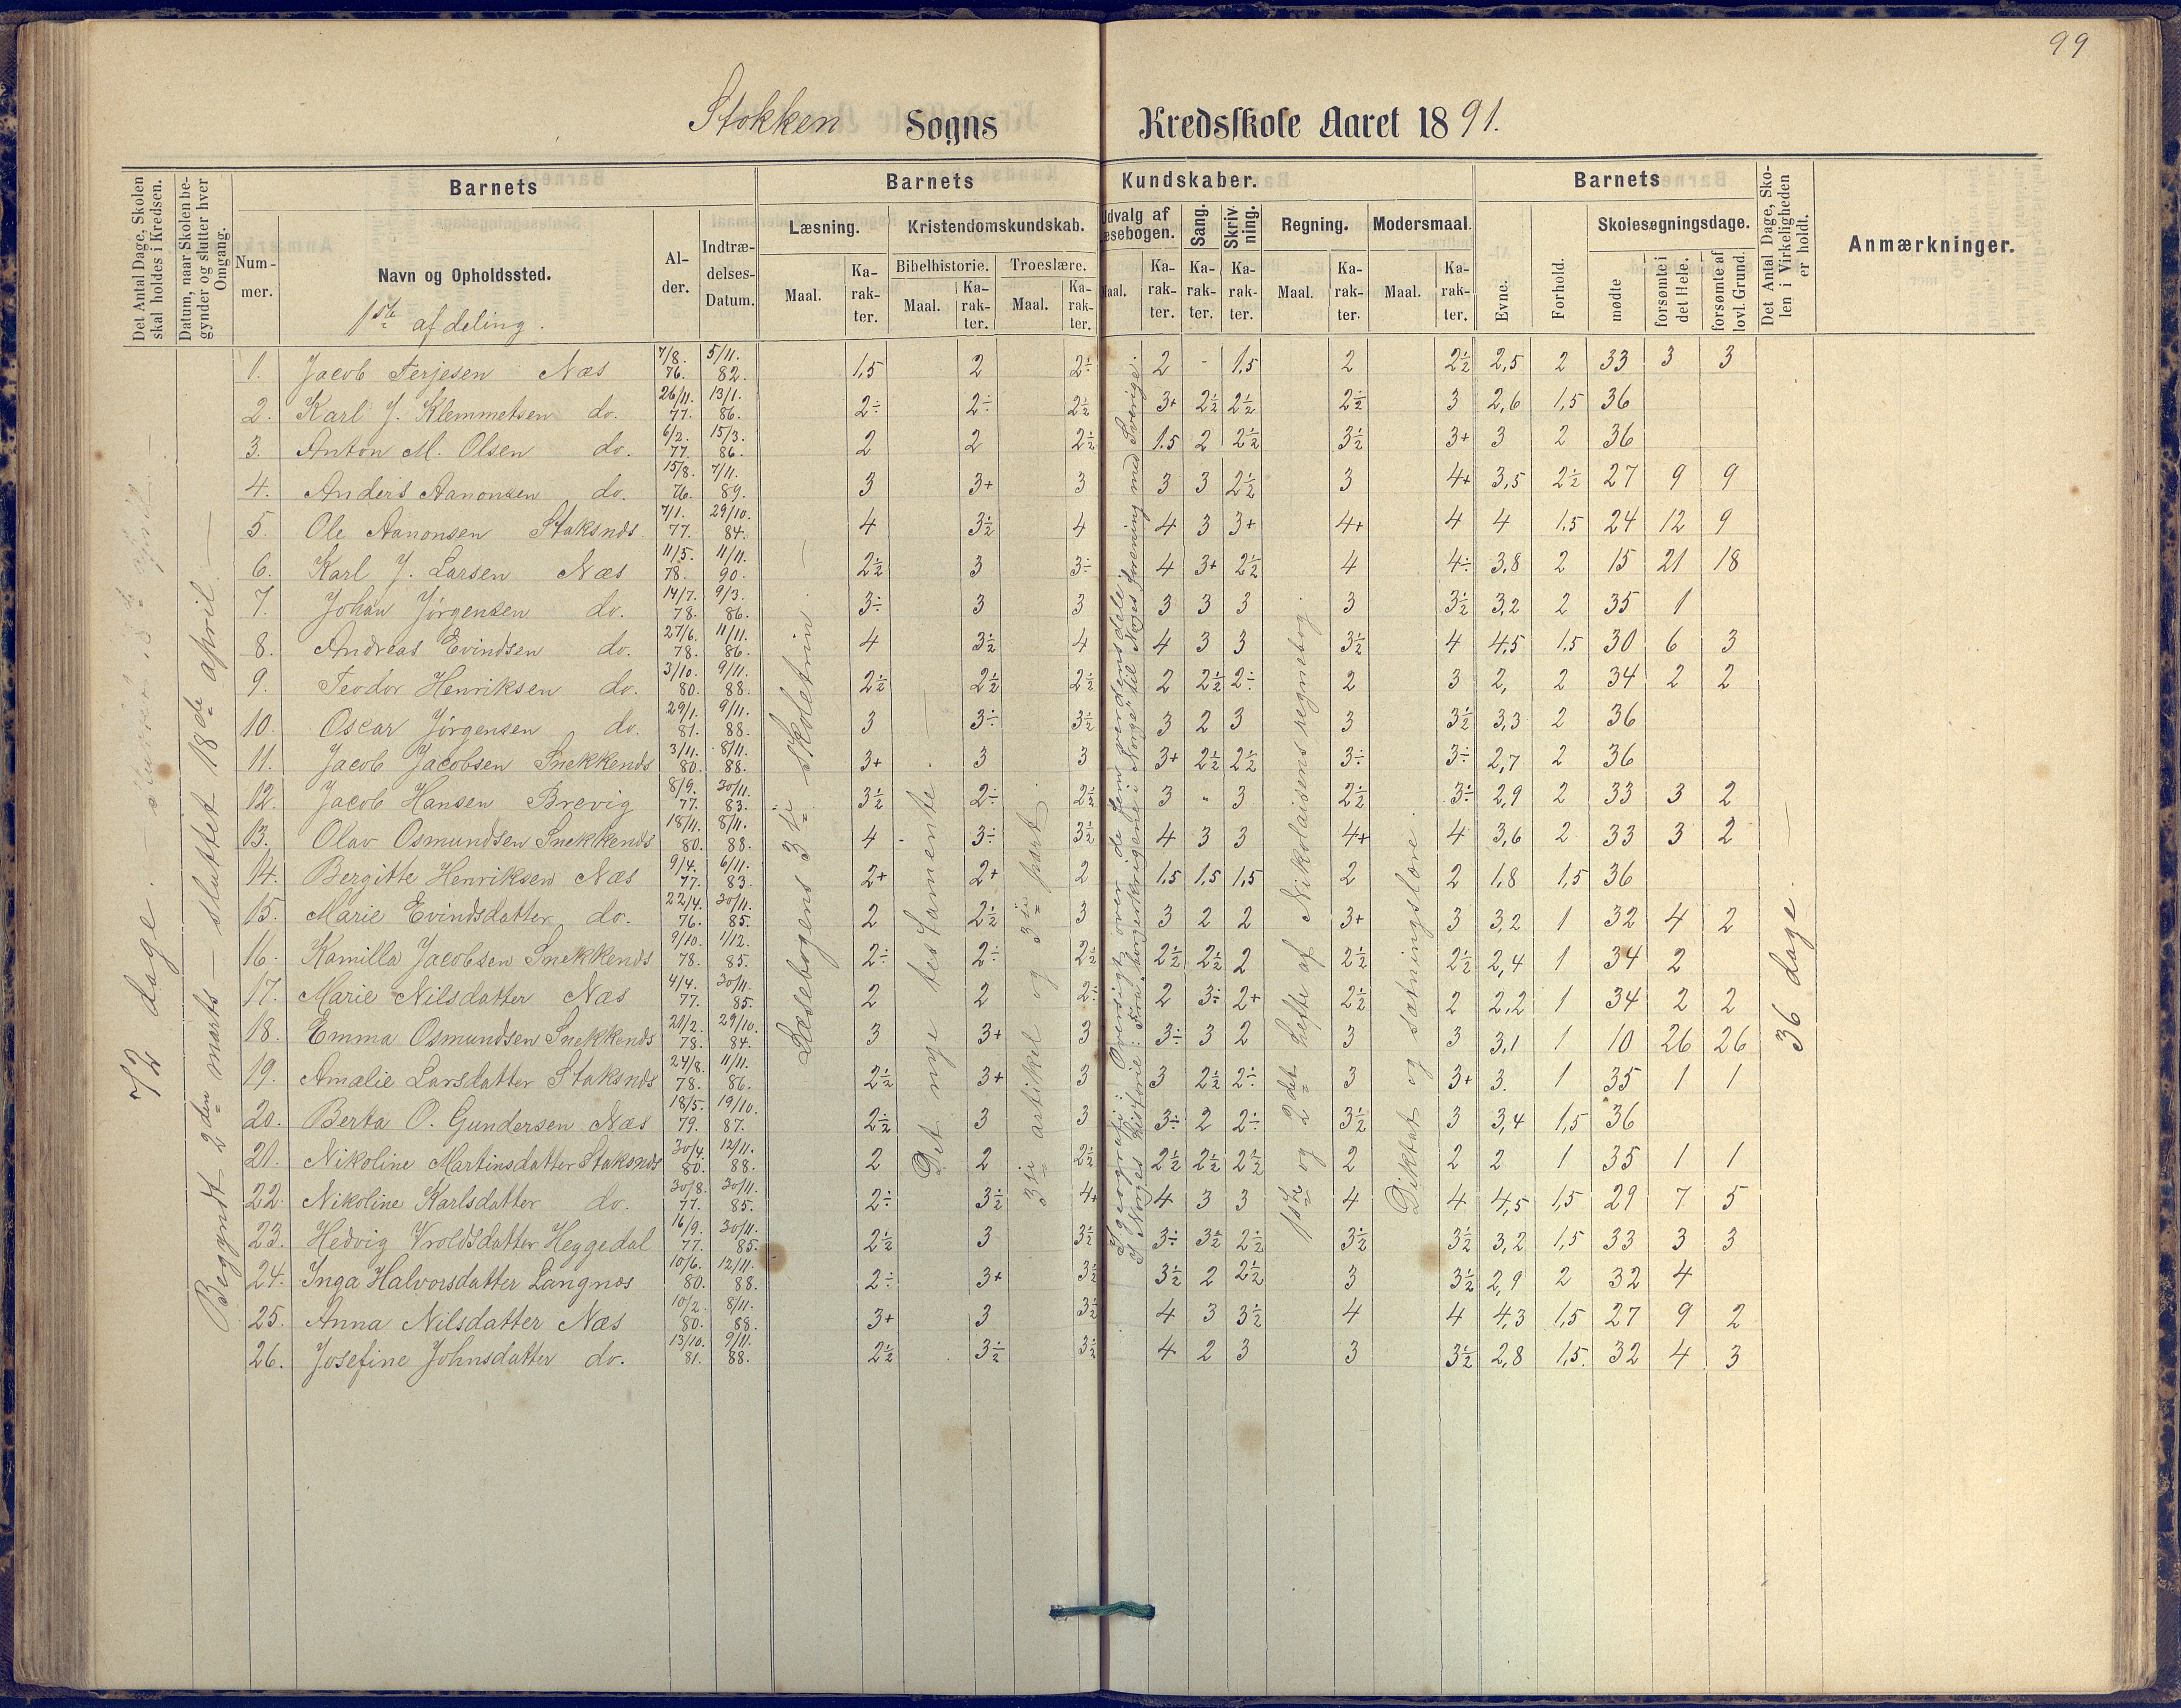 99
Stokken Sogns Kredsskole Aaret 1891.
Det Antal Dage, Skolen skal holdes i Kredsen.
Datum, naar Skolen begynder og slutter hver Omgang.
Barnets
Nummer.
Navn og Opholdssted.
1ste afdeling.
Alder.
Indtrædelses-Datum.
Barnets Kundskaber.
Læsning.
Maal. Karakter.
Kristendomskundskab.
Bibelhistorie. Maal. Karakter.
Troeslære. Maal. Karakter.
Udvalg af Læsebogen. Maal. Karakter.
Sang. Karakter.
Skrivning. Karakter.
Regning. Maal. Karakter.
Modersmaal. Maal. Karakter.
Barnets
Evne.
Forhold.
Skolesøgningsdage.
mødte
forsømte i det Hele.
forsømte af lovl. Grund.
Det Antal Dage, Skolen i Virkeligheden er holdt.
Anmærkninger.
72 dage.
Begyndt 2den marts – sluttet 18de april.
Læsebogens 3die skoletrin.
Det nye testamente
3die artikel og 3die part.
I geografi: Oversigt over de fem verdensdele.
I Norges historie: Fra "borgerkrigene i Norge" til Norges forening med Sverige.
1ste og 2det hefte af Nikolaisens regnebog.
Diktat og sætningslære.
36 dage.
1. Jacob Terjesen Næs 7/8. 76. 5/11. 82. 1,5 2 2÷ 2 - 1,5 2 2½ 2,5 2 33 3 3
2. Karl J. Klemmetsen do. 26/11. 77. 13/1. 86. 2÷ 2÷ 2½ 3+ 2½ 2½ 2½ 3 2,6 1,5 36
3. Anton M. Olsen do. 6/2. 77. 15/3. 86. 2 2 2½ 1.5 2 2½ 3½ 3+ 3 2 36
4. Anders Aanonsen do. 15/8. 76. 7/11. 89. 3 3+ 3 3 3 2½ 3 4+ 3,5 2½ 27 9 9
5. Ole Aanonsen Staksnds 7/1. 77. 29/10. 84. 4 3½ 4 4 3 3+ 4+ 4 4 1,5 24 12 9
6. Karl J. Larsen Næs 11/5. 78. 11/11. 90. 2½ 3 3÷ 4 3+ 2½ 4 4÷ 3,8 2 15 21 18
7. Johan Jörgensen do. 14/7. 78. 9/3. 86. 3÷ 3 3 3 3 3 3 3½ 3,2 2 35 1
8. Andreas Evindsen do. 27/6. 78. 11/11. 86. 4 3½ 4 4 3 3 3½ 4 4,5 1,5 30 6 3
9. Teodor Henriksen do. 3/10. 80. 9/11. 88. 2½ 2½ 2½ 2 2½ 2÷ 2 3 2, 2 34 2 2
10. Oscar Jörgensen do. 29/1. 81. 9/11. 88. 3 3÷ 3½ 3 2 3 3 3½ 3,3 2 36
11. Jacob Jacobsen Snekkends 3/11. 80. 8/11. 88. 3+ 3 3 3+ 2½ 2½ 3÷ 3÷ 2,7 2 36
12. Jacob Hansen Brevig 8/9. 77. 30/11. 83. 3½ 2÷ 2½ 3 " 3 2½ 3÷ 2,9 2 33 3 2
13. Olav Osmundsen Snekkends 18/11. 80. 8/11. 88. 4 3÷ 3½ 4 3 3 4+ 4 3,6 2 33 3 2
14. Bergitte Henriksen Næs 9/4. 77. 6/11. 83. 2+ 2+ 2 1,5 1,5 1,5 2 2 1,8 1,5 36
15. Marie Evindsdatter do. 22/4. 76. 30/11. 85. 2 2½ 3 3 2 2 3+ 3 3,2 1 32 4 2
16. Kamilla Jacobsen Snekkends 9/10. 78. 1/12. 85. 2÷ 2÷ 2½ 2½ 2½ 2 2½ 2½ 2,4 1 34 2
17. Marie Nilsdatter Næs 4/4. 77. 30/11. 85. 2 2 2÷ 2 3÷ 2+ 2½ 2 2,2 1 34 2 2
18. Emma Osmundsen Snekkends 21/2. 78. 29/10. 84. 3 3+ 3 3÷ 3 2 3 3 3,1 1 10 26 26
19. Amalie Larsdatter Staksnds 24/8. 78. 11/11. 86. 2½ 3+ 3 3 2½ 2÷ 3 3+ 3. 1 35 1 1
20. Berta O. Gundersen Næs 18/5. 79. 19/10. 87. 2½ 3 3 3÷ 2 2÷ 3½ 3 3,4 1,5 36
21. Nikoline Martinsdatter Staksnds 30/4. 80. 12/11. 88. 2 2 2½ 2½ 2½ 2½ 2 2 2 1 35 1 1
22. Nikoline Karlsdatter do. 30/8. 77. 30/11. 85. 2÷ 3½ 4+ 4 3 3 4 4 4,5 1,5 29 7 5
23. Hedvig Vroldsdatter Heggedal 16/9. 77. 30/11. 85. 2½ 3 3½ 3÷ 3½ 2½ 3½ 3½ 3,2 1,5 33 3 3
24. Inga Halvorsdatter Langnæs 10/6. 80. 12/11. 88. 2÷ 3+ 3½ 3½ 2 2½ 3 3½ 2,9 2 32 4
25. Anna Nilsdatter Næs 10/2. 80. 8/11. 88. 3+ 3 3½ 4 3 3½ 4 4 4,3 1,5 27 9 2
26. Josefine Johnsdatter do. 13/10. 81. 9/11. 88. 2½ 3½ 3½ 4 2 3 3 3½ 2,8 1,5. 32 4 3